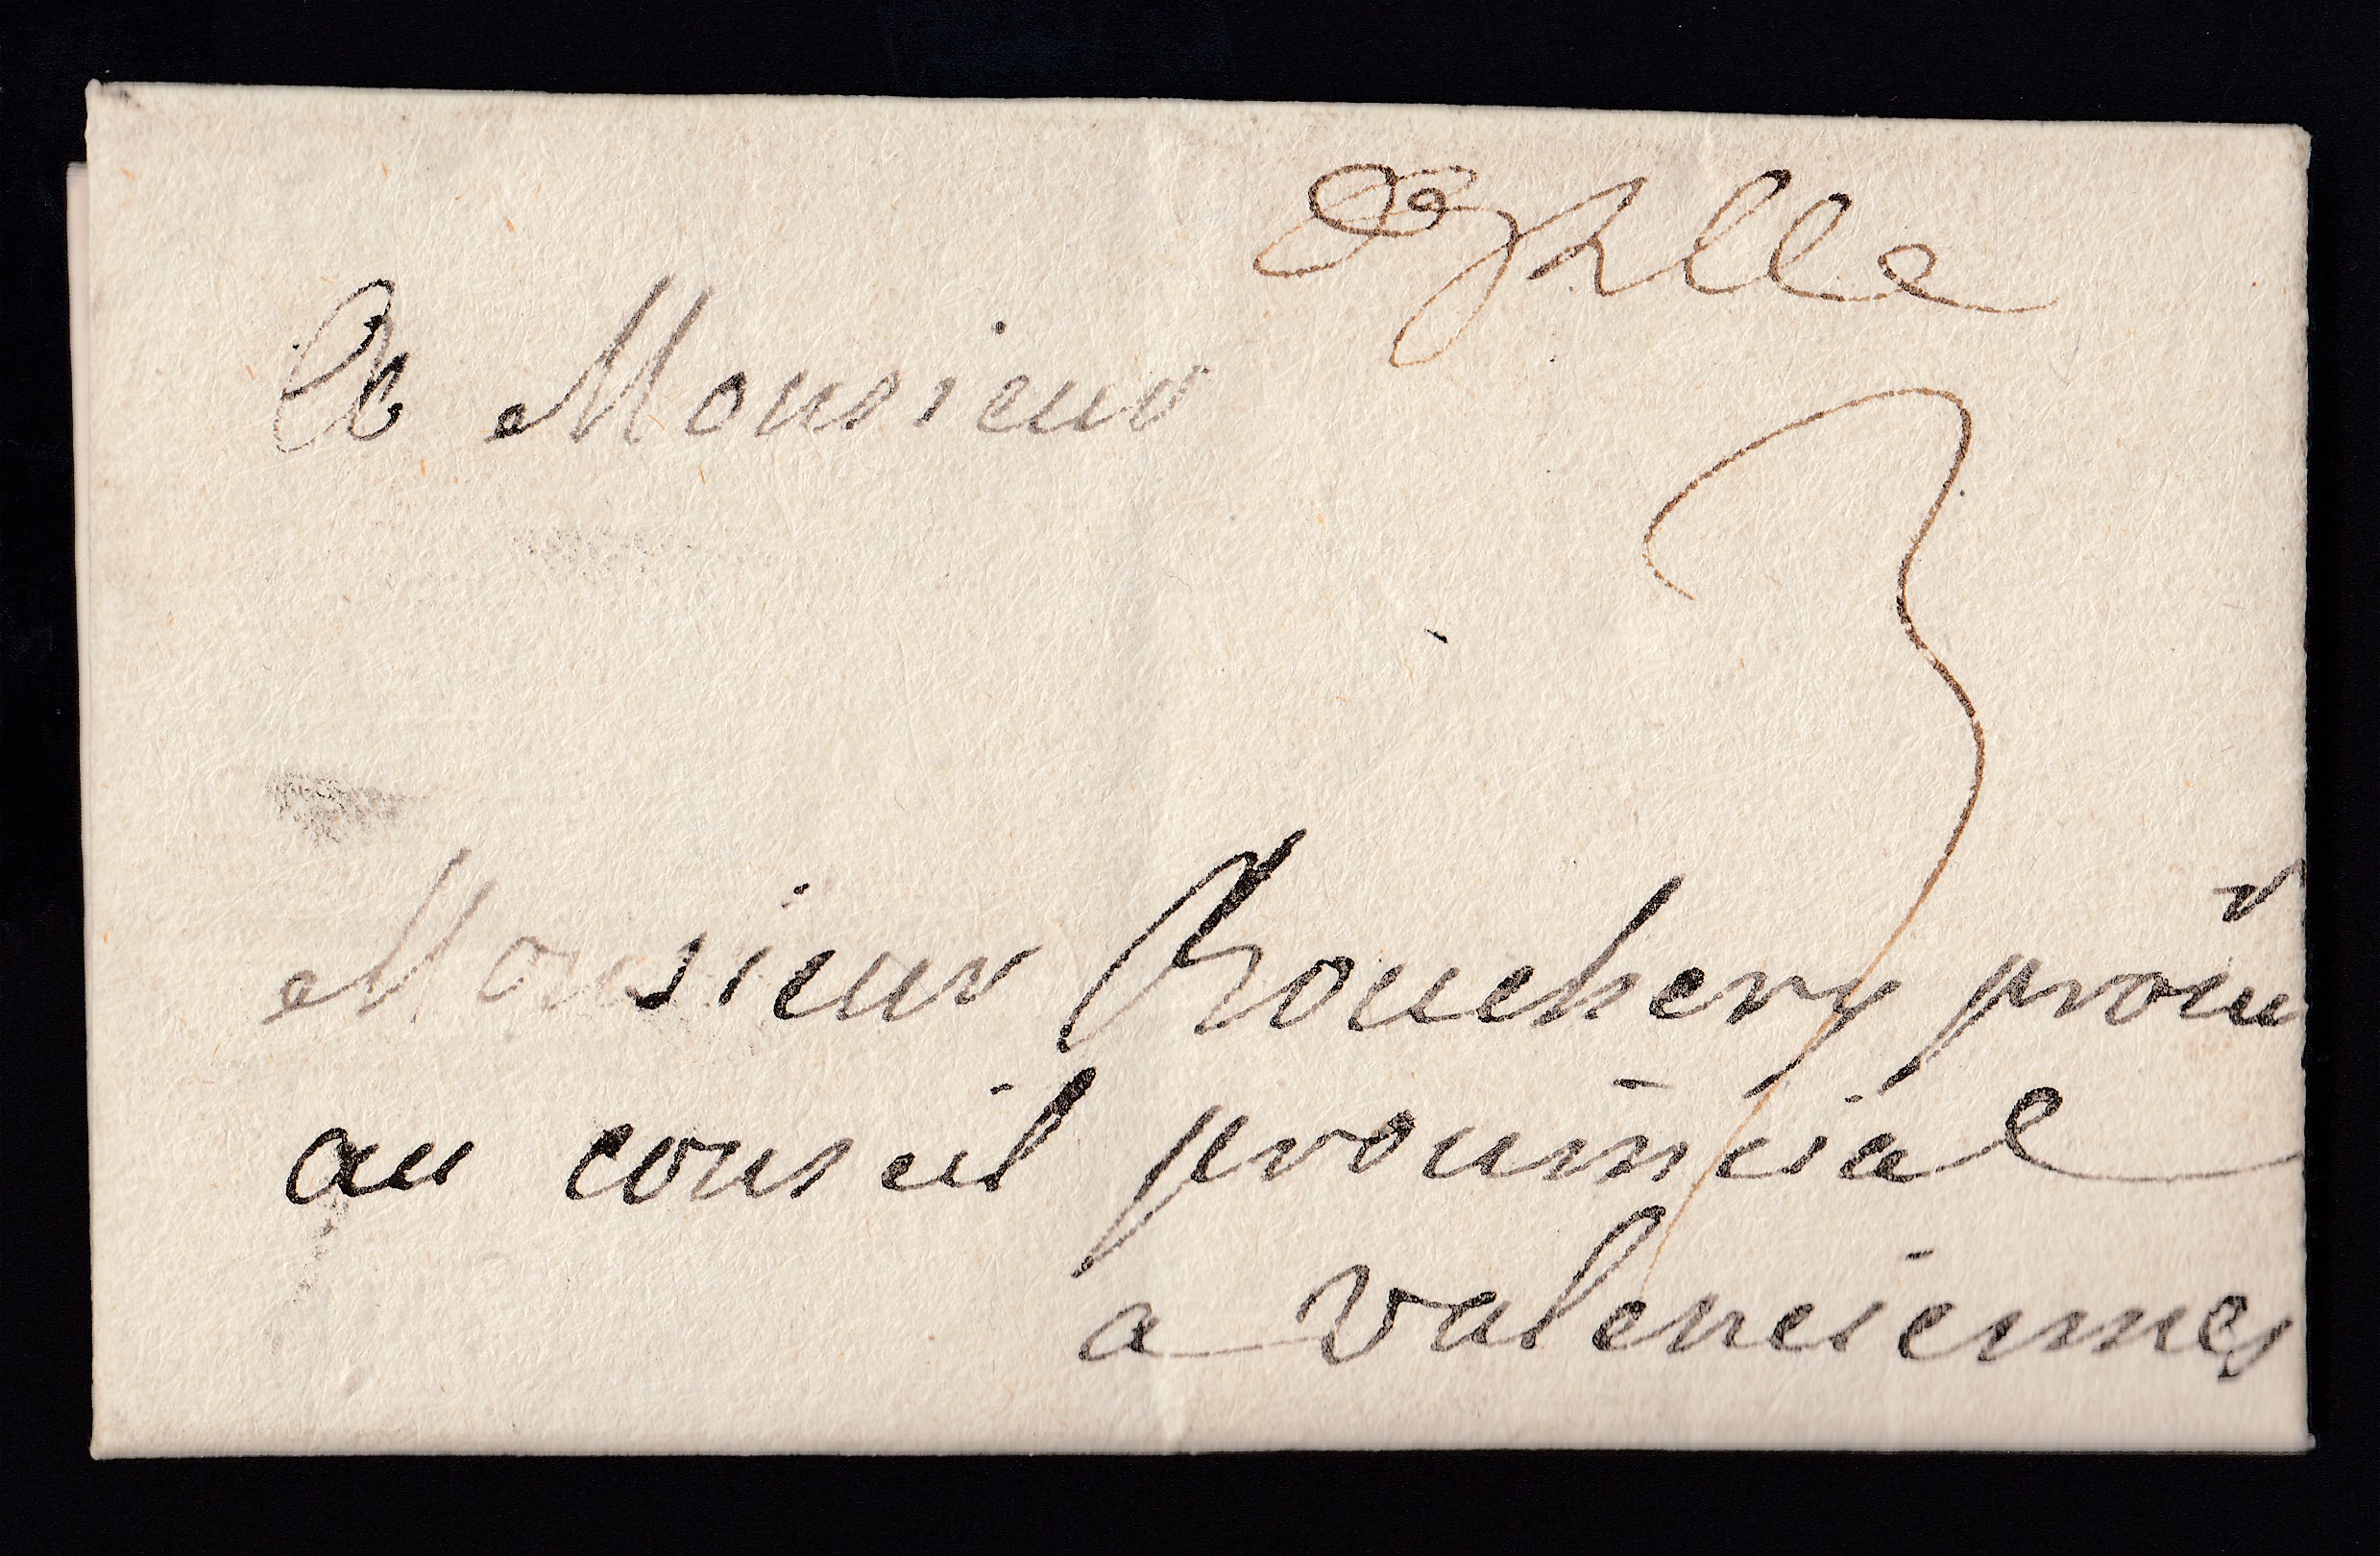 De Lille
A Monsieur
3
Monsieur Bouchery prou^r
au conseil prouincial
a Valenciennes